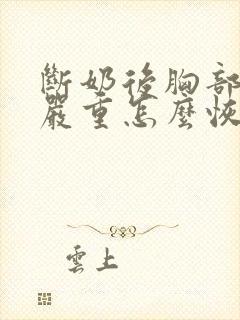 斷奶後胸部
嚴重怎麼恢
雲上